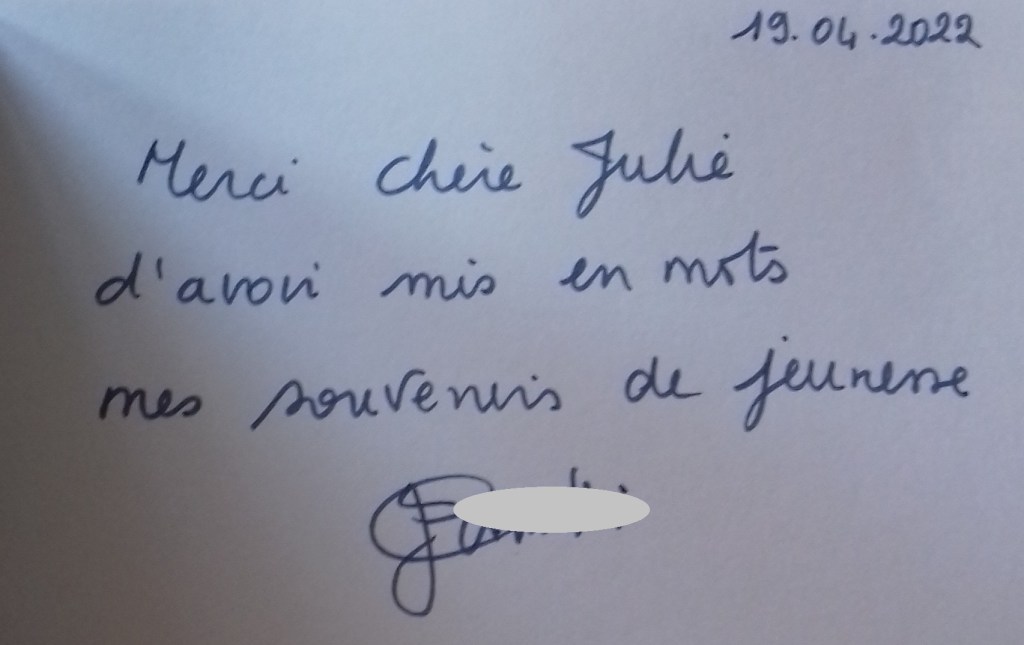 19.04.2022
Merci chère Julie
d'avoir mis en mots
mes souvenirs de jeunesse